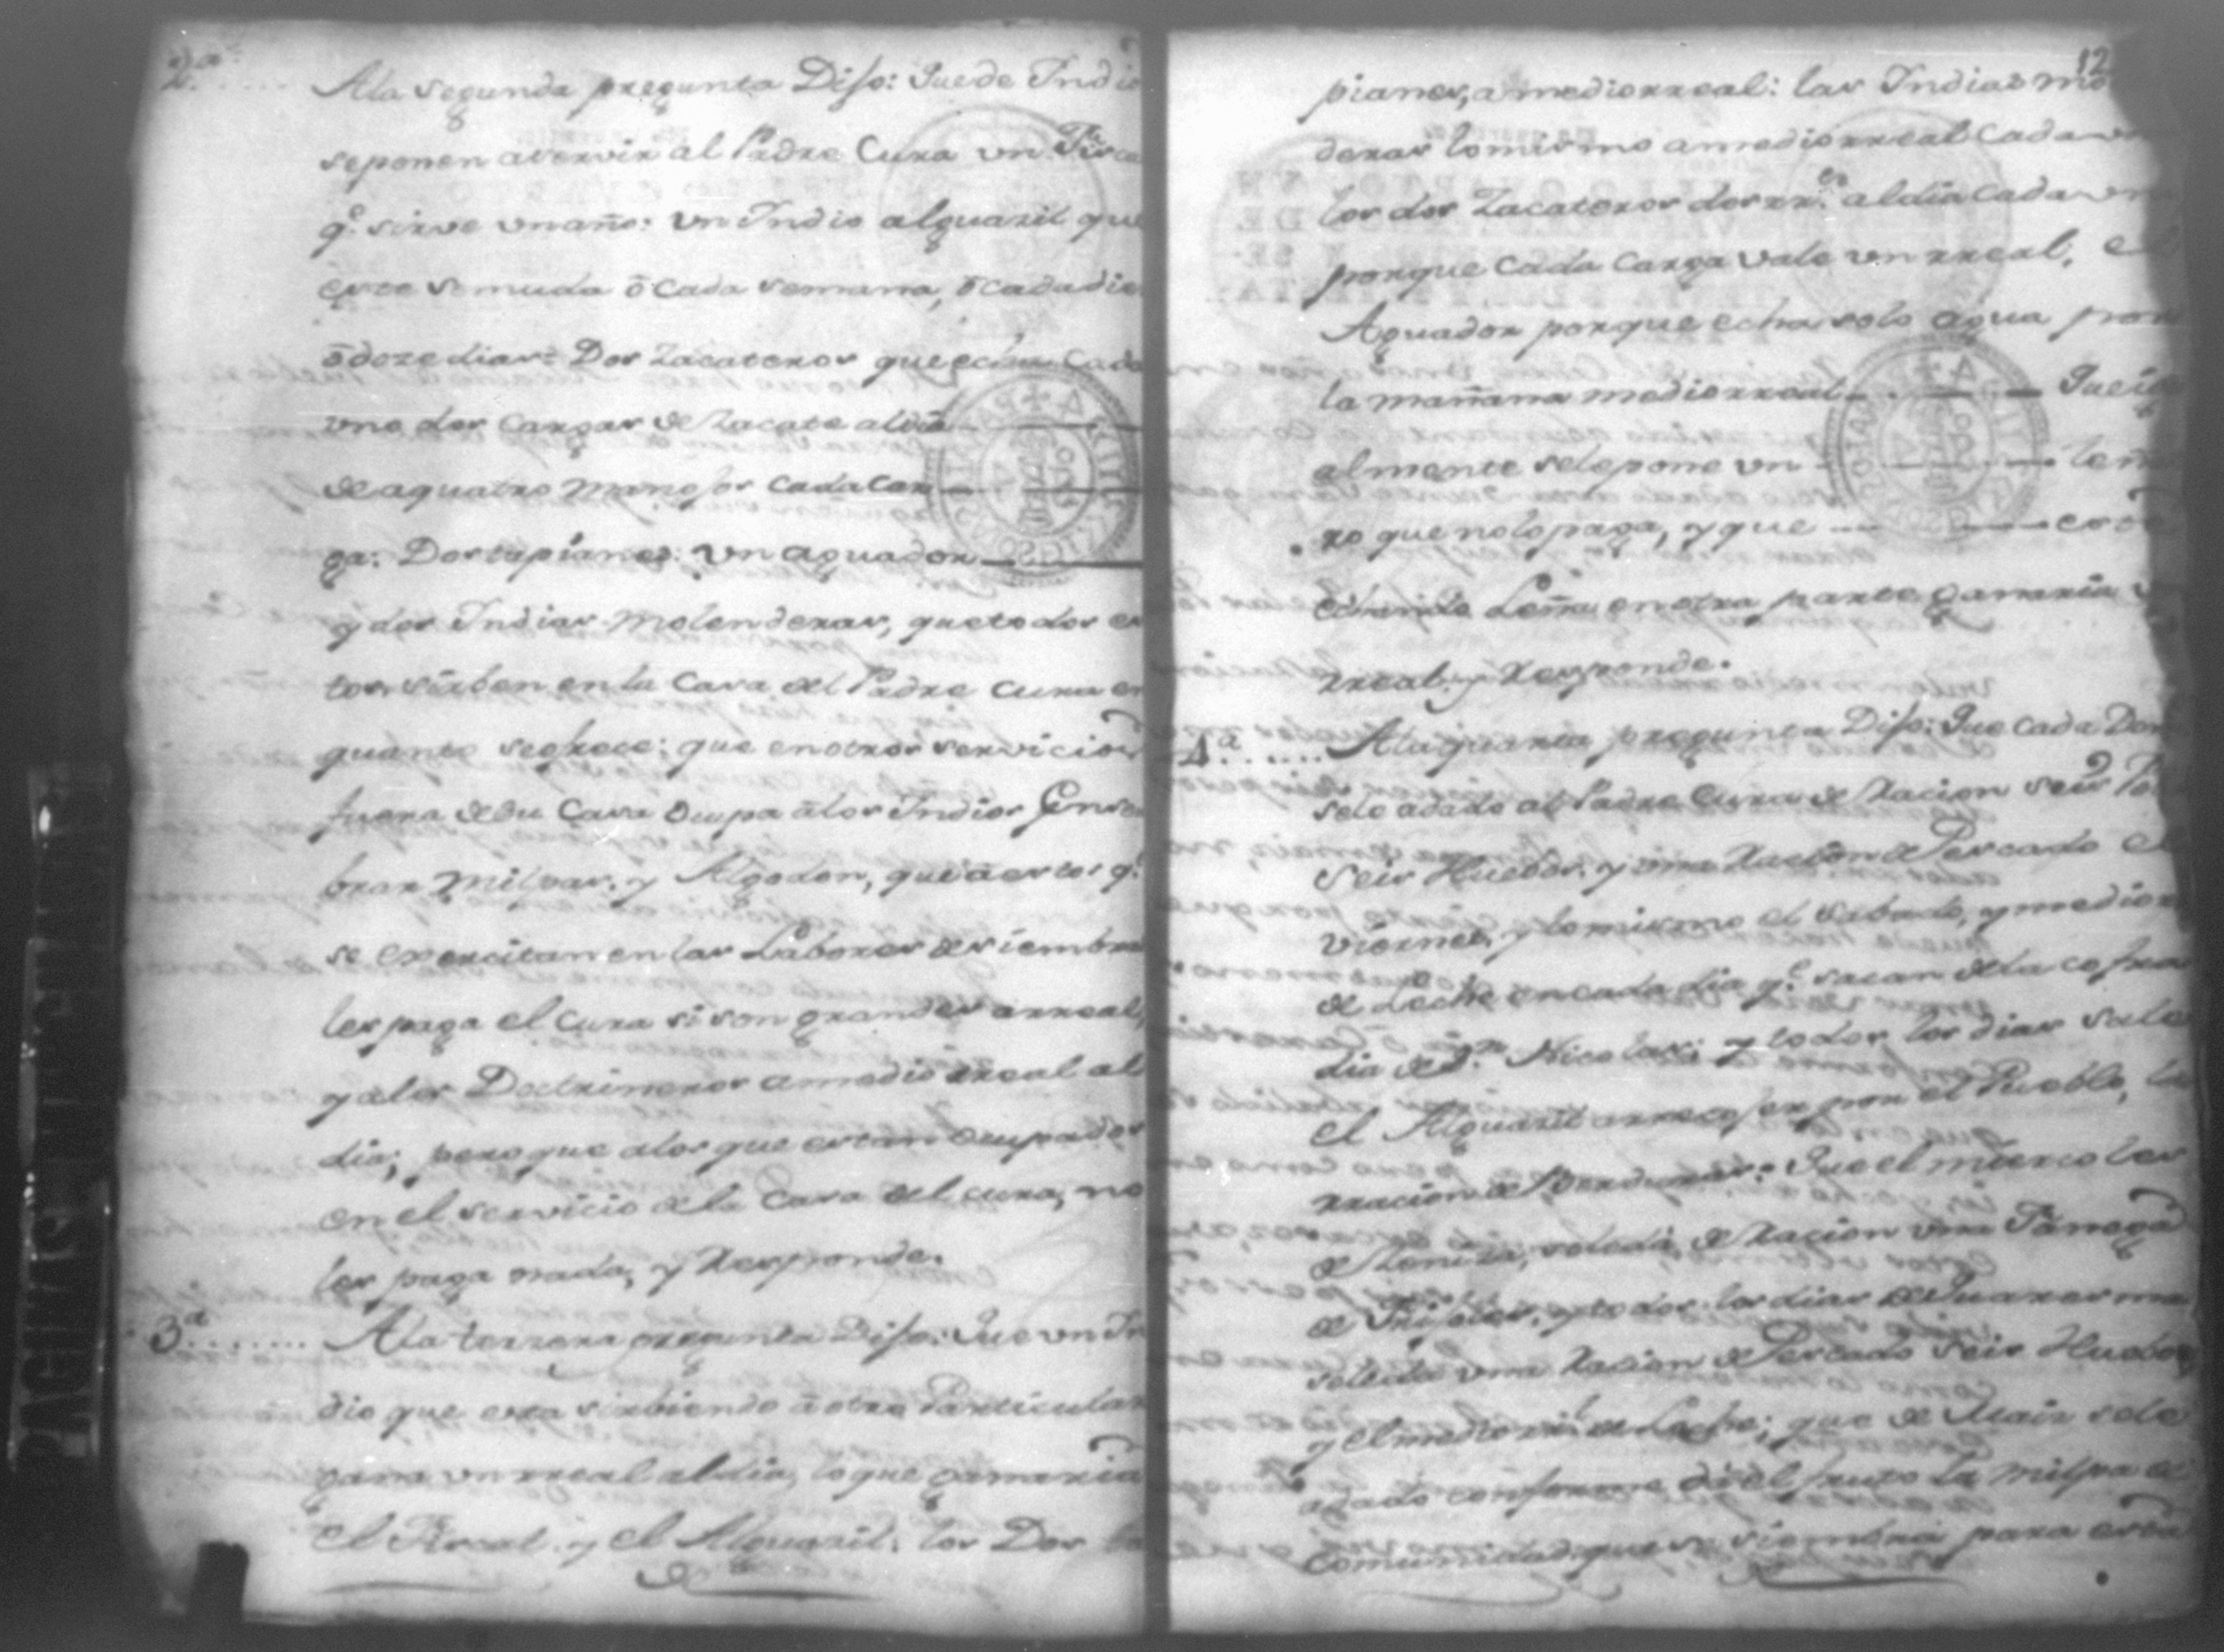 2ª.....
Ala segunda pregunta Dijo: Que de Indio
seponen aservir al Padre Cura vn Fisca
q.e sirve vnaño: vn Indio alguazil que
este semuda ô cada semana, ô cadadie
ôdoze dias: Dos Zacateros que echan cada
vno dos cargas de Zacate aldia
de aquatro manojos cadacar
ga: Dos tapianes: vn aguador
y dos Indias Molenderas, quetodos es
tos sirben en la Casa del Padre cura en
quanto seofrece: que enotros servicios
fuera desu Casa ocupa âlos Indios Ensem
brar Milpas, y Algodon, que âestos q.e
se exercitan en las Labores de siembra
les paga el cura si son grandes arreal,
y alos Doctrineros amedio rreal al
dia; pero que alos que estan ocupados
en el servicio dela Casa del cura, no
les paga nada, y Responde.
3ª....... Ala terzera pregunta Dijo: Que vn In
dio que esta sirbiendo â otro Particular
gana vn rreal aldia, lo que ganaria
el Fiscal, y el Alguazil, los Dos ta
12
pianes, a medio rreal: las Indias mo
deras lomismo amediorreal cada vn
los dos Zacateros dos rr.es aldia cada vn
porque cada carga vale vn rreal, el
Aguador porque echa solo agua por
la mañana mediorreal Que ig
almente selepone vn leñ
ro que nolo paga, y que este
echando Leña en otra parte ganaria v
rreal, y Responde.
4ª...... Ala quarta pregunta Dijo: Que cada Dom
selo adado al Padre Cura de Racion seis
seis Huebos, y vna Racion de Pescado el
viernes, y lomismo el sabado, y medio r
de Leche encada dia q.e sacan dela cofra
dia de S.n Nicolas: y todos los dias sale
el Alguazil arrecojer por el Pueblo, la
rracion de Verduras: Que el miercoles
de Zeniza, seledá de Racion vna Fanega
de Frijoles, y todos los dias de Quaresma
seleda vna Racion de Pescado seis Huebos
y elmedio rr.l de Leche; que de Maiz sele
adado conforme dá el fruto la Milpa de
comunidad que se siembra para esta